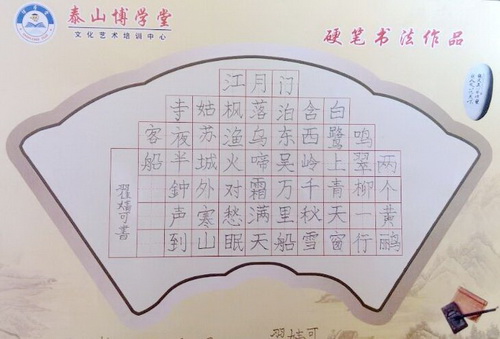 泰山博学堂
文化艺术培训中心
硬笔书法作品
两个黄鹂
鸣翠柳一行
白鹭上青天窗
含西岭千秋雪
门泊东吴万里船
月落乌啼霜满天
江枫渔火对愁眠
姑苏城外寒山
寺夜半鐘声到
客船
翟婧可書
翟婧可